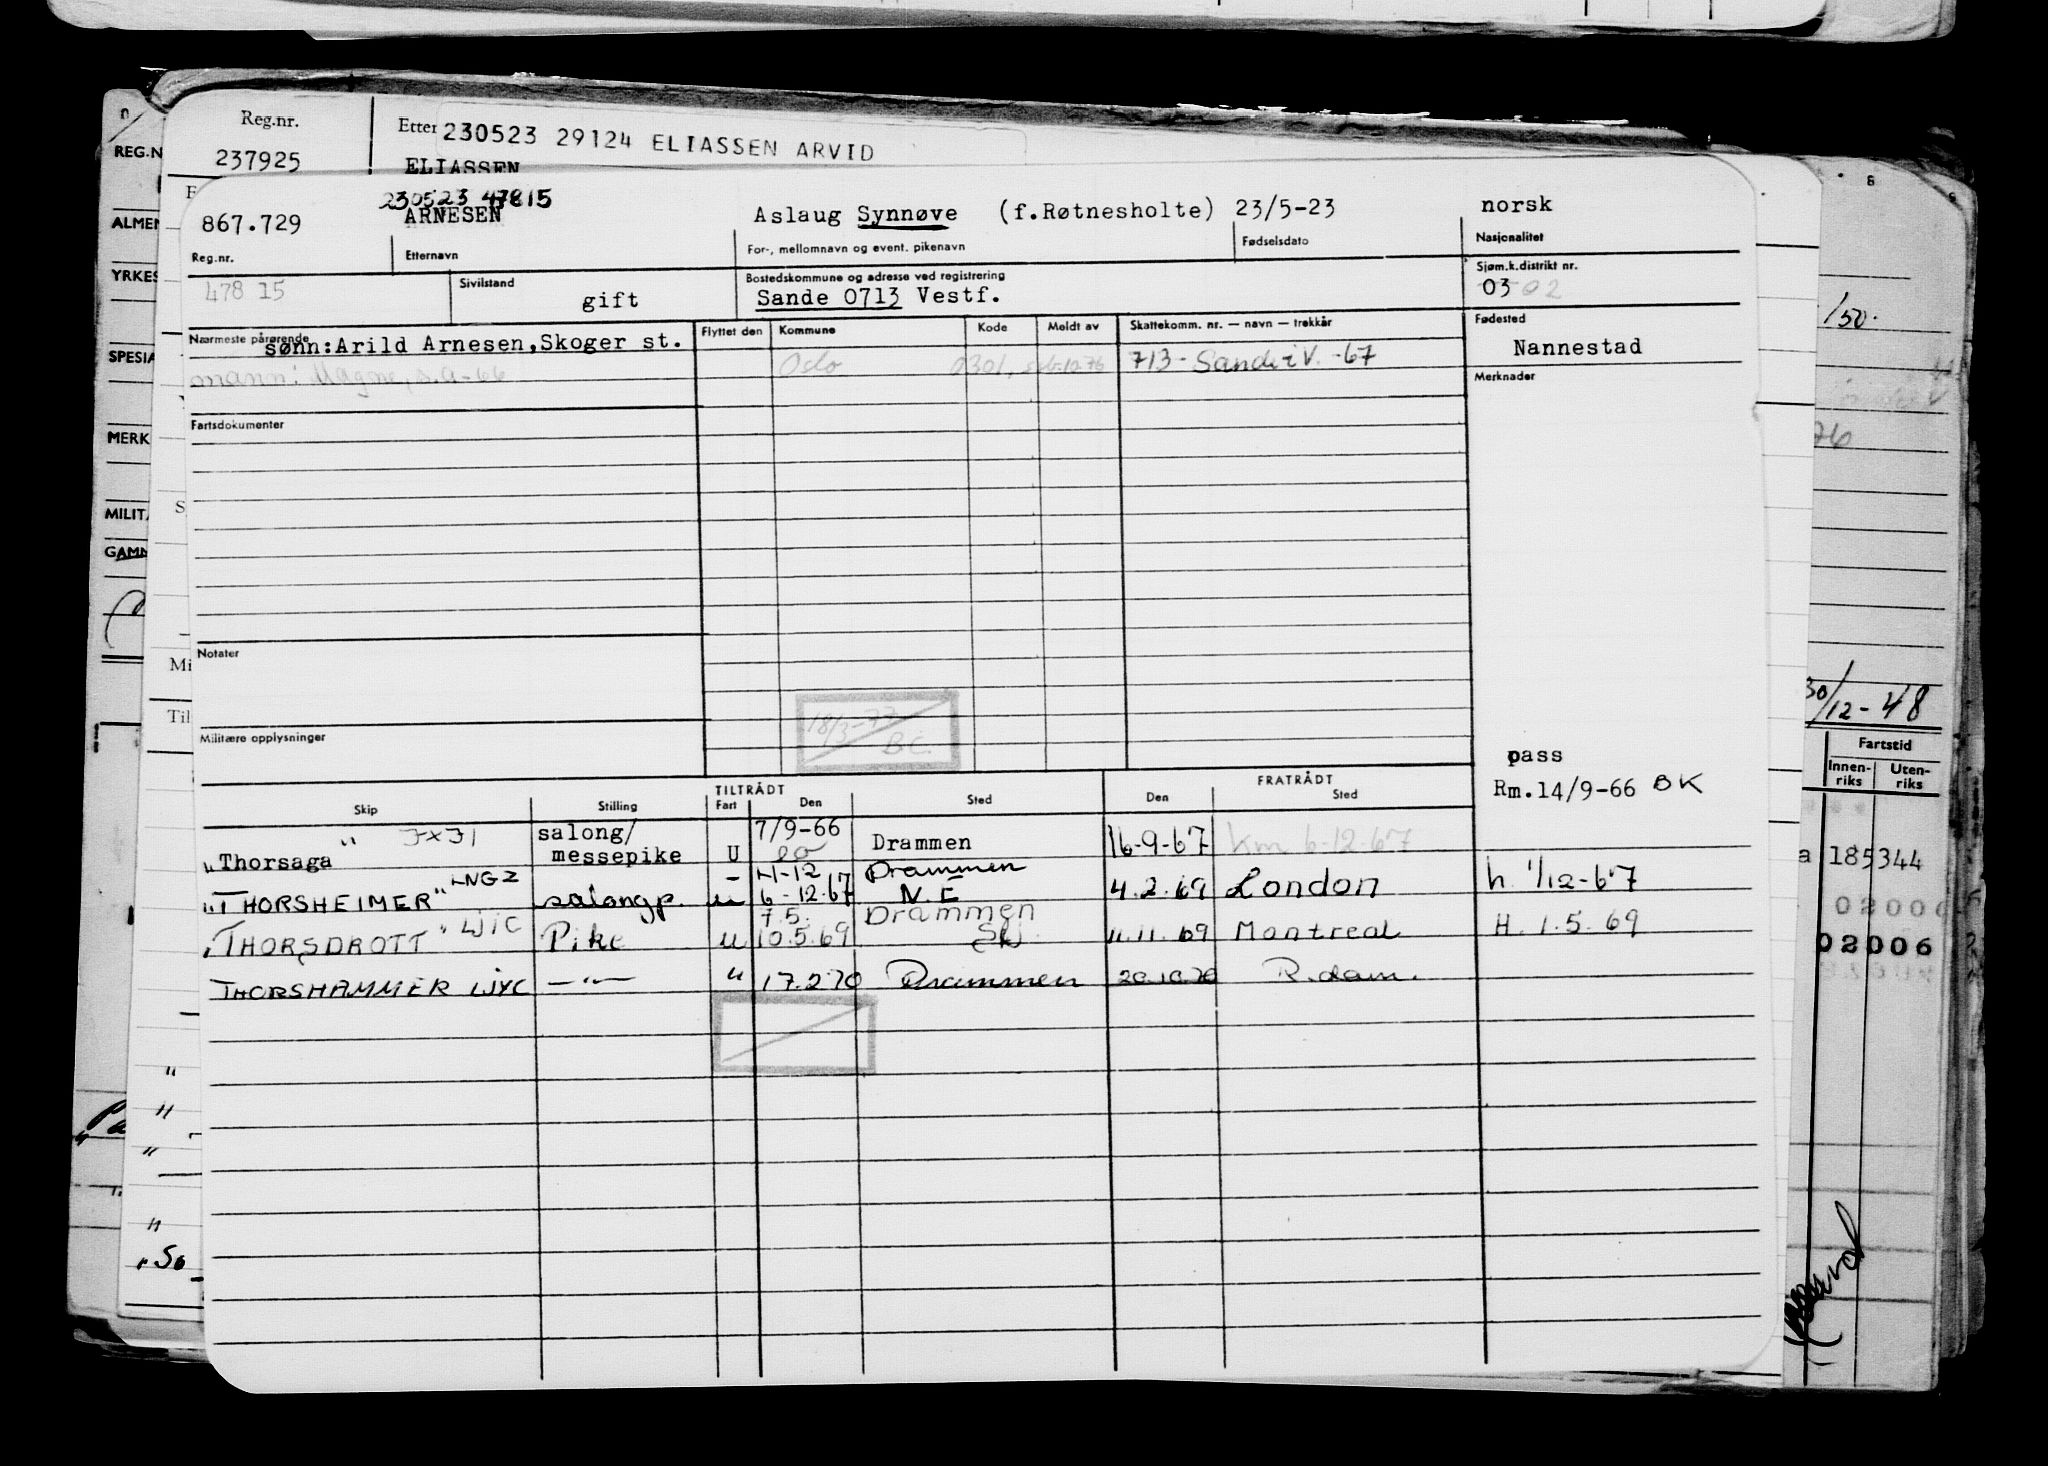 Reg.nr.
Etter 230523 29124 ELIASSEN ARVID
237925 ELIASSEN
230523 47815
867.729 ARNESEN Aslaug Synnøve (f.Røtnesholte) 23/5-23 norsk
Reg.nr. Etternavn For-, mellomnavn og event. pikenavn Fødselsdato Nasjonalitet
478 15 Sivilstand gift Bostedskommune og adresse ved registrering Sjøm.k.distrikt nr.
Sande 0713 Vestf. 03 02
Nærmeste pårørende Flyttet den Kommune Kode Meldt av Skattekomm. nr. — navn — trekkår Fødested
sønn:Arild Arnesen,Skoger st. Nannestad
mann: Magne, s.a-66 Oslo 0301, 713- Sande i V. -67
Merknader
Fartsdokumenter
Notater
18/3-77
B.C.
Militære opplysninger
pass
Rm.14/9-66 BK
TILTRÅDT FRATRÅDT
Skip Stilling Fart Den Sted Den Sted
"Thorsaga" salong/ messepike U 7/9-66 Drammen 16-9-67 Km 6-12-67
Drammen
"THORSHEIMER" LNGZ salongp. u 6-12.67 N.E 4.2.69 London h. 1/12-67
7.5. Drammen
"THORSDROTT" LJIC Pike u 10.5.69 Skj. 11.11.69 Montreal H. 1.5.69
THORSHAMMER LJYC —"— " 17.2 70 Drammen 20.10.70 R.dam.
REG.N
ALMEN
YRKES
SPESIA
MERK
MILITÆ
GAMM
Mi
Til
"So
/50.
76
30/12-48
Fartstid
Innen-riks Uten-riks
a 185344
02006
02006